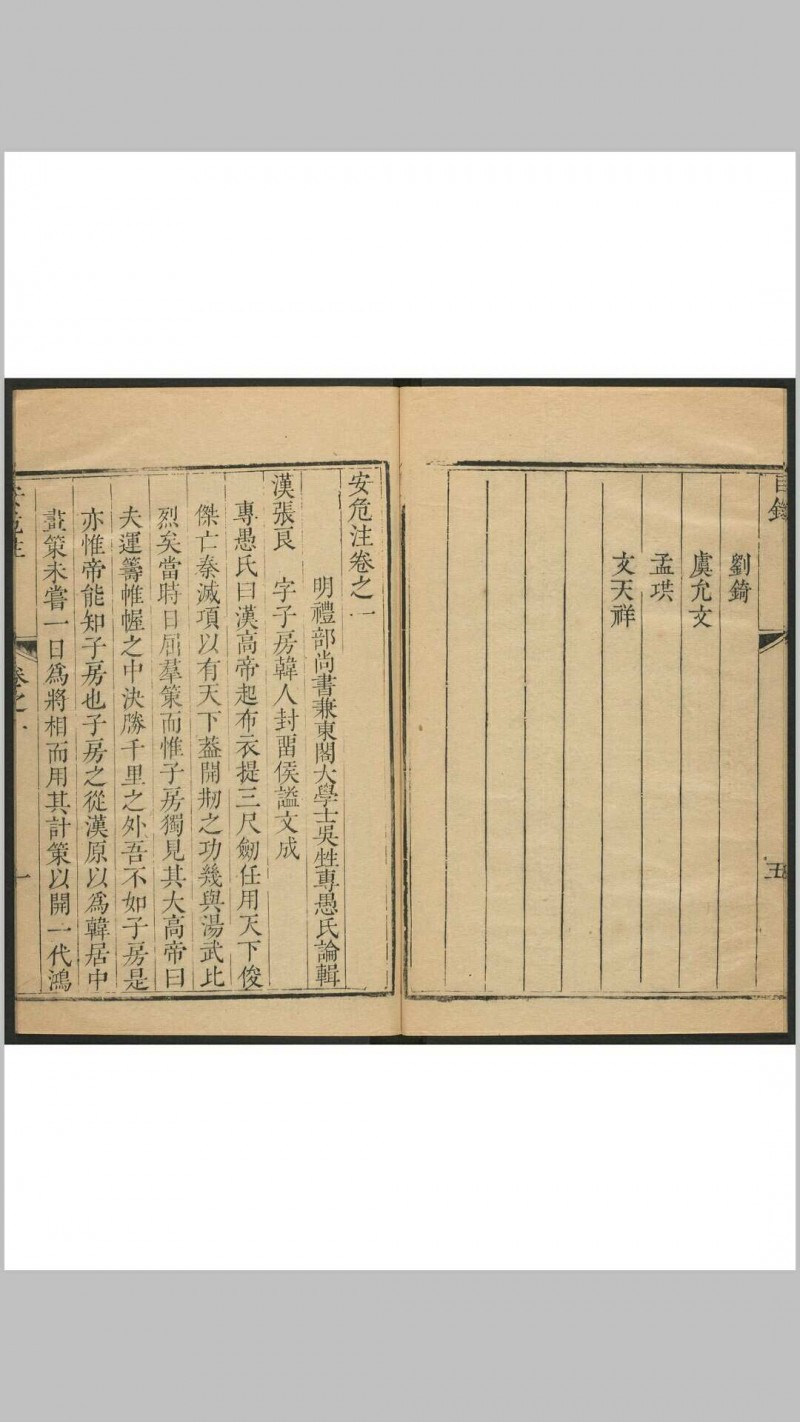 目錄
劉錡
虞允文
孟珙
文天祥
五
安危注卷之一
明禮部尚書兼東閣大學士吳甡專愚氏論輯
漢張良 字子房韓人封畱侯謚文成
專愚氏曰漢高帝起布衣提三尺劒任用天下俊
傑亡秦滅項以有天下蓋開刱之功幾與湯武比
烈矣當時日屈羣策而惟子房獨見其大高帝曰
夫運籌帷幄之中決勝千里之外吾不如子房是
亦惟帝能知子房也子房之從漢原以爲韓居中
畫策未嘗一日爲將相而用其計策以開一代鴻
安危注
卷之一
一